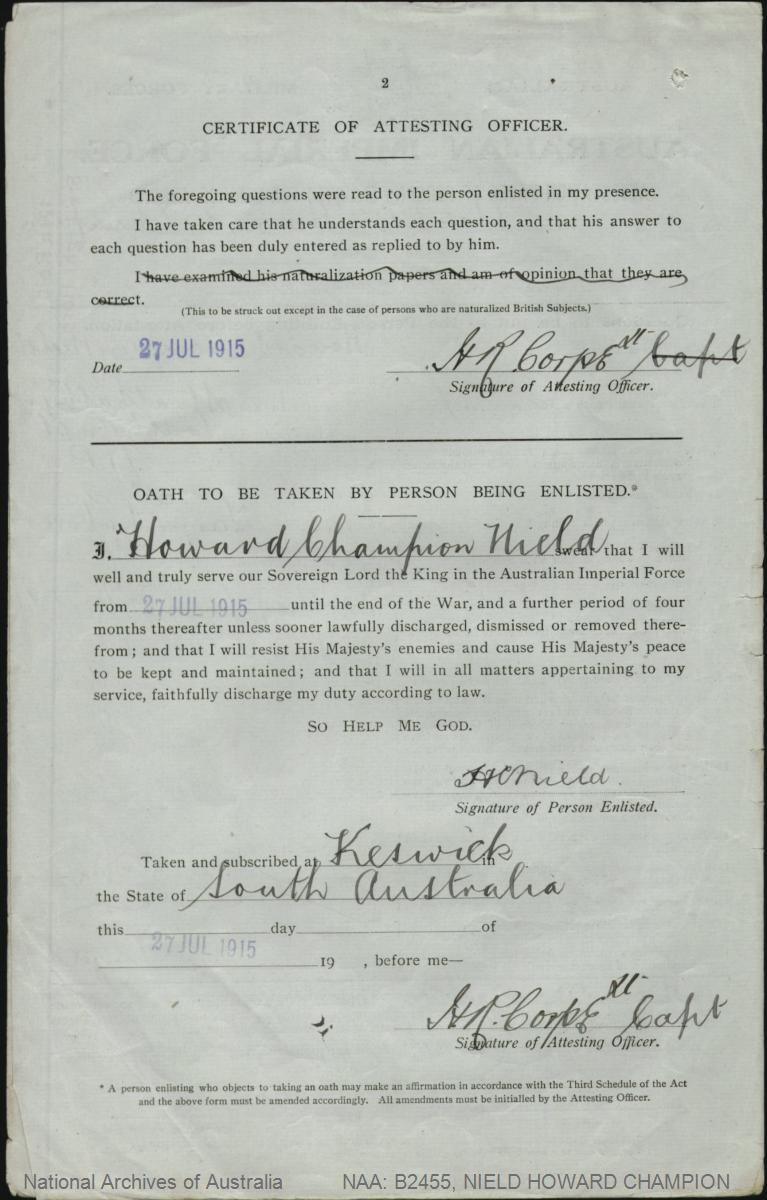 2
CERTIFICATE OF ATTESTING OFFICER.
The foregoing questions were read to the person enlisted in my presence.
I have taken care that he understands each question, and that his answer to
each question has been duly entered as replied to by him.
I have examined his naturalization papers and am of opinion that they are
correct.
(This to be struck out except in the case of persons who are naturalized British Subjects.)
Date 27 JUL 1915
H R Corpe Lt Capt
Signature of Attesting Officer.
OATH TO BE TAKEN BY PERSON BEING ENLISTED.*
I, Howard Champion Nield swear that I will
well and truly serve our Sovereign Lord the King in the Australian Imperial Force
from 27 JUL 1915 until the end of the War, and a further period of four
months thereafter unless sooner lawfully discharged, dismissed or removed there-
from; and that I will resist His Majesty's enemies and cause His Majesty's peace
to be kept and maintained; and that I will in all matters appertaining to my
service, faithfully discharge my duty according to law.
SO HELP ME GOD.
H C Nield.
Signature of Person Enlisted.
Taken and subscribed at Keswick in
the State of South Australia
this day of
27 JUL 1915
19 , before me—
H R. Corpe Lt Capt
Signature of Attesting Officer.
* A person enlisting who objects to taking an oath may make an affirmation in accordance with the Third Schedule of the Act
and the above form must be amended accordingly. All amendments must be initialled by the Attesting Officer.
National Archives of Australia NAA: B2455, NIELD HOWARD CHAMPION